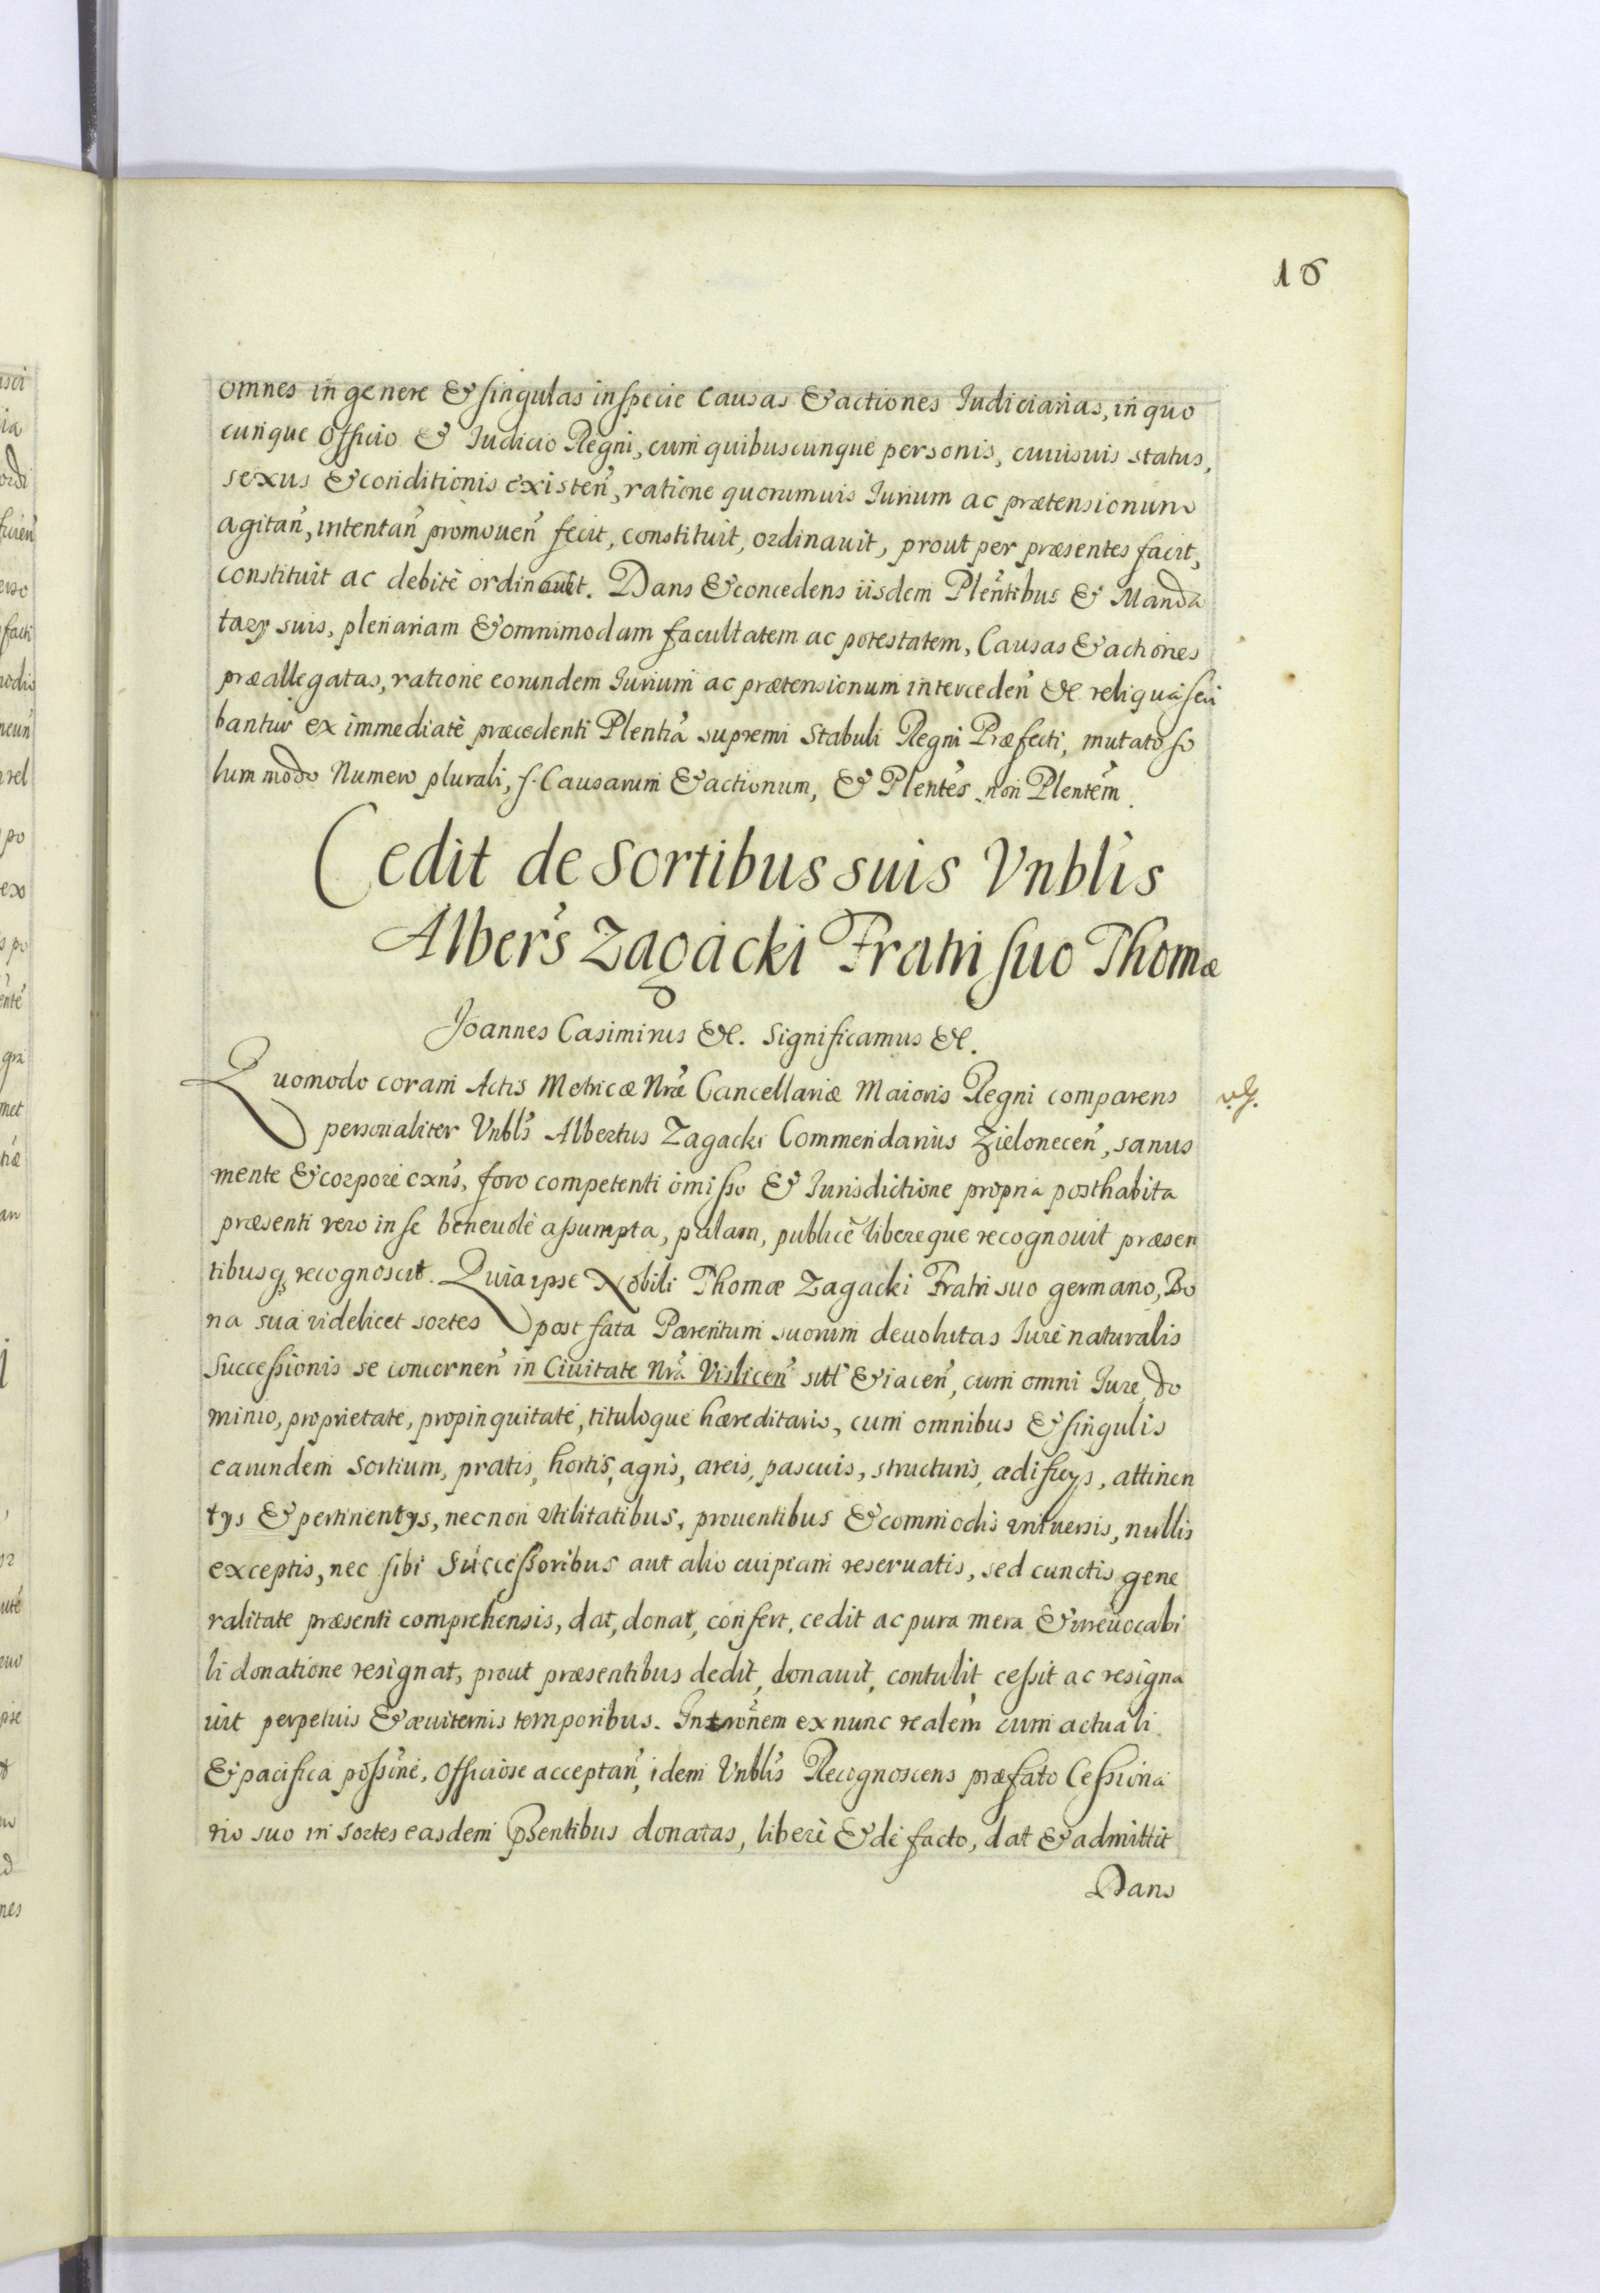 16
omnes in genere & singulas in specie Causas & actiones Iudiciarias, in quo
cunque Officio & Iudicio Regni, cum quibuscunque personis, cuiusuis status,
sexus & conditionis existen̄, ratione quorumuis Iurium ac prætensionum
agitan̄, intentan̄ promouen̄ fecit, constituit, ordinauit, prout per præsentes facit,
constituit ac debitè ordinauit. Dans & concedens iisdem Plen̄tibus & Manda
tarÿ suis, plenariam & omnimodam facultatem ac potestatem, Causas & actiones
præallegatas, ratione eorundem Iurium ac prætensionum interceden̄ &c. reliqua scri
bantur ex immediatè præcedenti Plentīa supremi Stabuli Regni Præfecti, mutato so
lum modo Numero plurali, s. Causarum & actionum, & Plentēs non Plentēm.
Cedit de Sortibus suis Vnblīs
Alber̄s Zagacki Fratri suo Thomæ
Joannes Casimirus &c. Significamus &c.
Quomodo coram Actis Metricæ Nrǣ Cancellariæ Maioris Regni comparens
personaliter Vnblīs Albertus Zagacki Commendarius Zielonecen̄, sanus
mente & corpore exn̄s, foro competenti omisso & Iurisdictione propria posthabita
præsenti vero in se beneuolè assumpta, palam, publicè libereque recognouit præsen
tibusq̢ recognoscit. Quia ipse Nobili Thomæ Zagacki Fratri suo germano, Bo
na sua videlicet sortes post fata Parentum suorum deuolutas Iure naturalis
Successionis se concernen̄ in Ciuitate Nrā Vislicen̄ sitt̄ & iacen̄, cum omni Iure, do
minio, proprietate, propinquitate, tituloque hæreditario, cum omnibus & singulis
earundem Sortium, pratis, hortis, agris, areis, pascuis, structuris, ædificÿs, attinen
tÿs & pertinentÿs, necnon vtilitatibus, prouentibus & commodis vniuersis, nullis
exceptis, nec sibi Successoribus aut alio cuipiam reseruatis, sed cunctis gene
ralitate præsenti comprehensis, dat, donat, confert, cedit ac pura mera & irreuocabi
li donatione resignat, prout præsentibus dedit, donauit, contulit, cessit ac resigna
uit perpetuis & æuiternis temporibus. Intrōnem ex nunc realem cum actuali
& pacifica possn̄e, Officiose acceptan̄, idem Vnblīs Recognoscens præfato Cessiona
rio suo in sortes easdem p̄sentibus donatas, liberè & de facto, dat & admittit
Dans